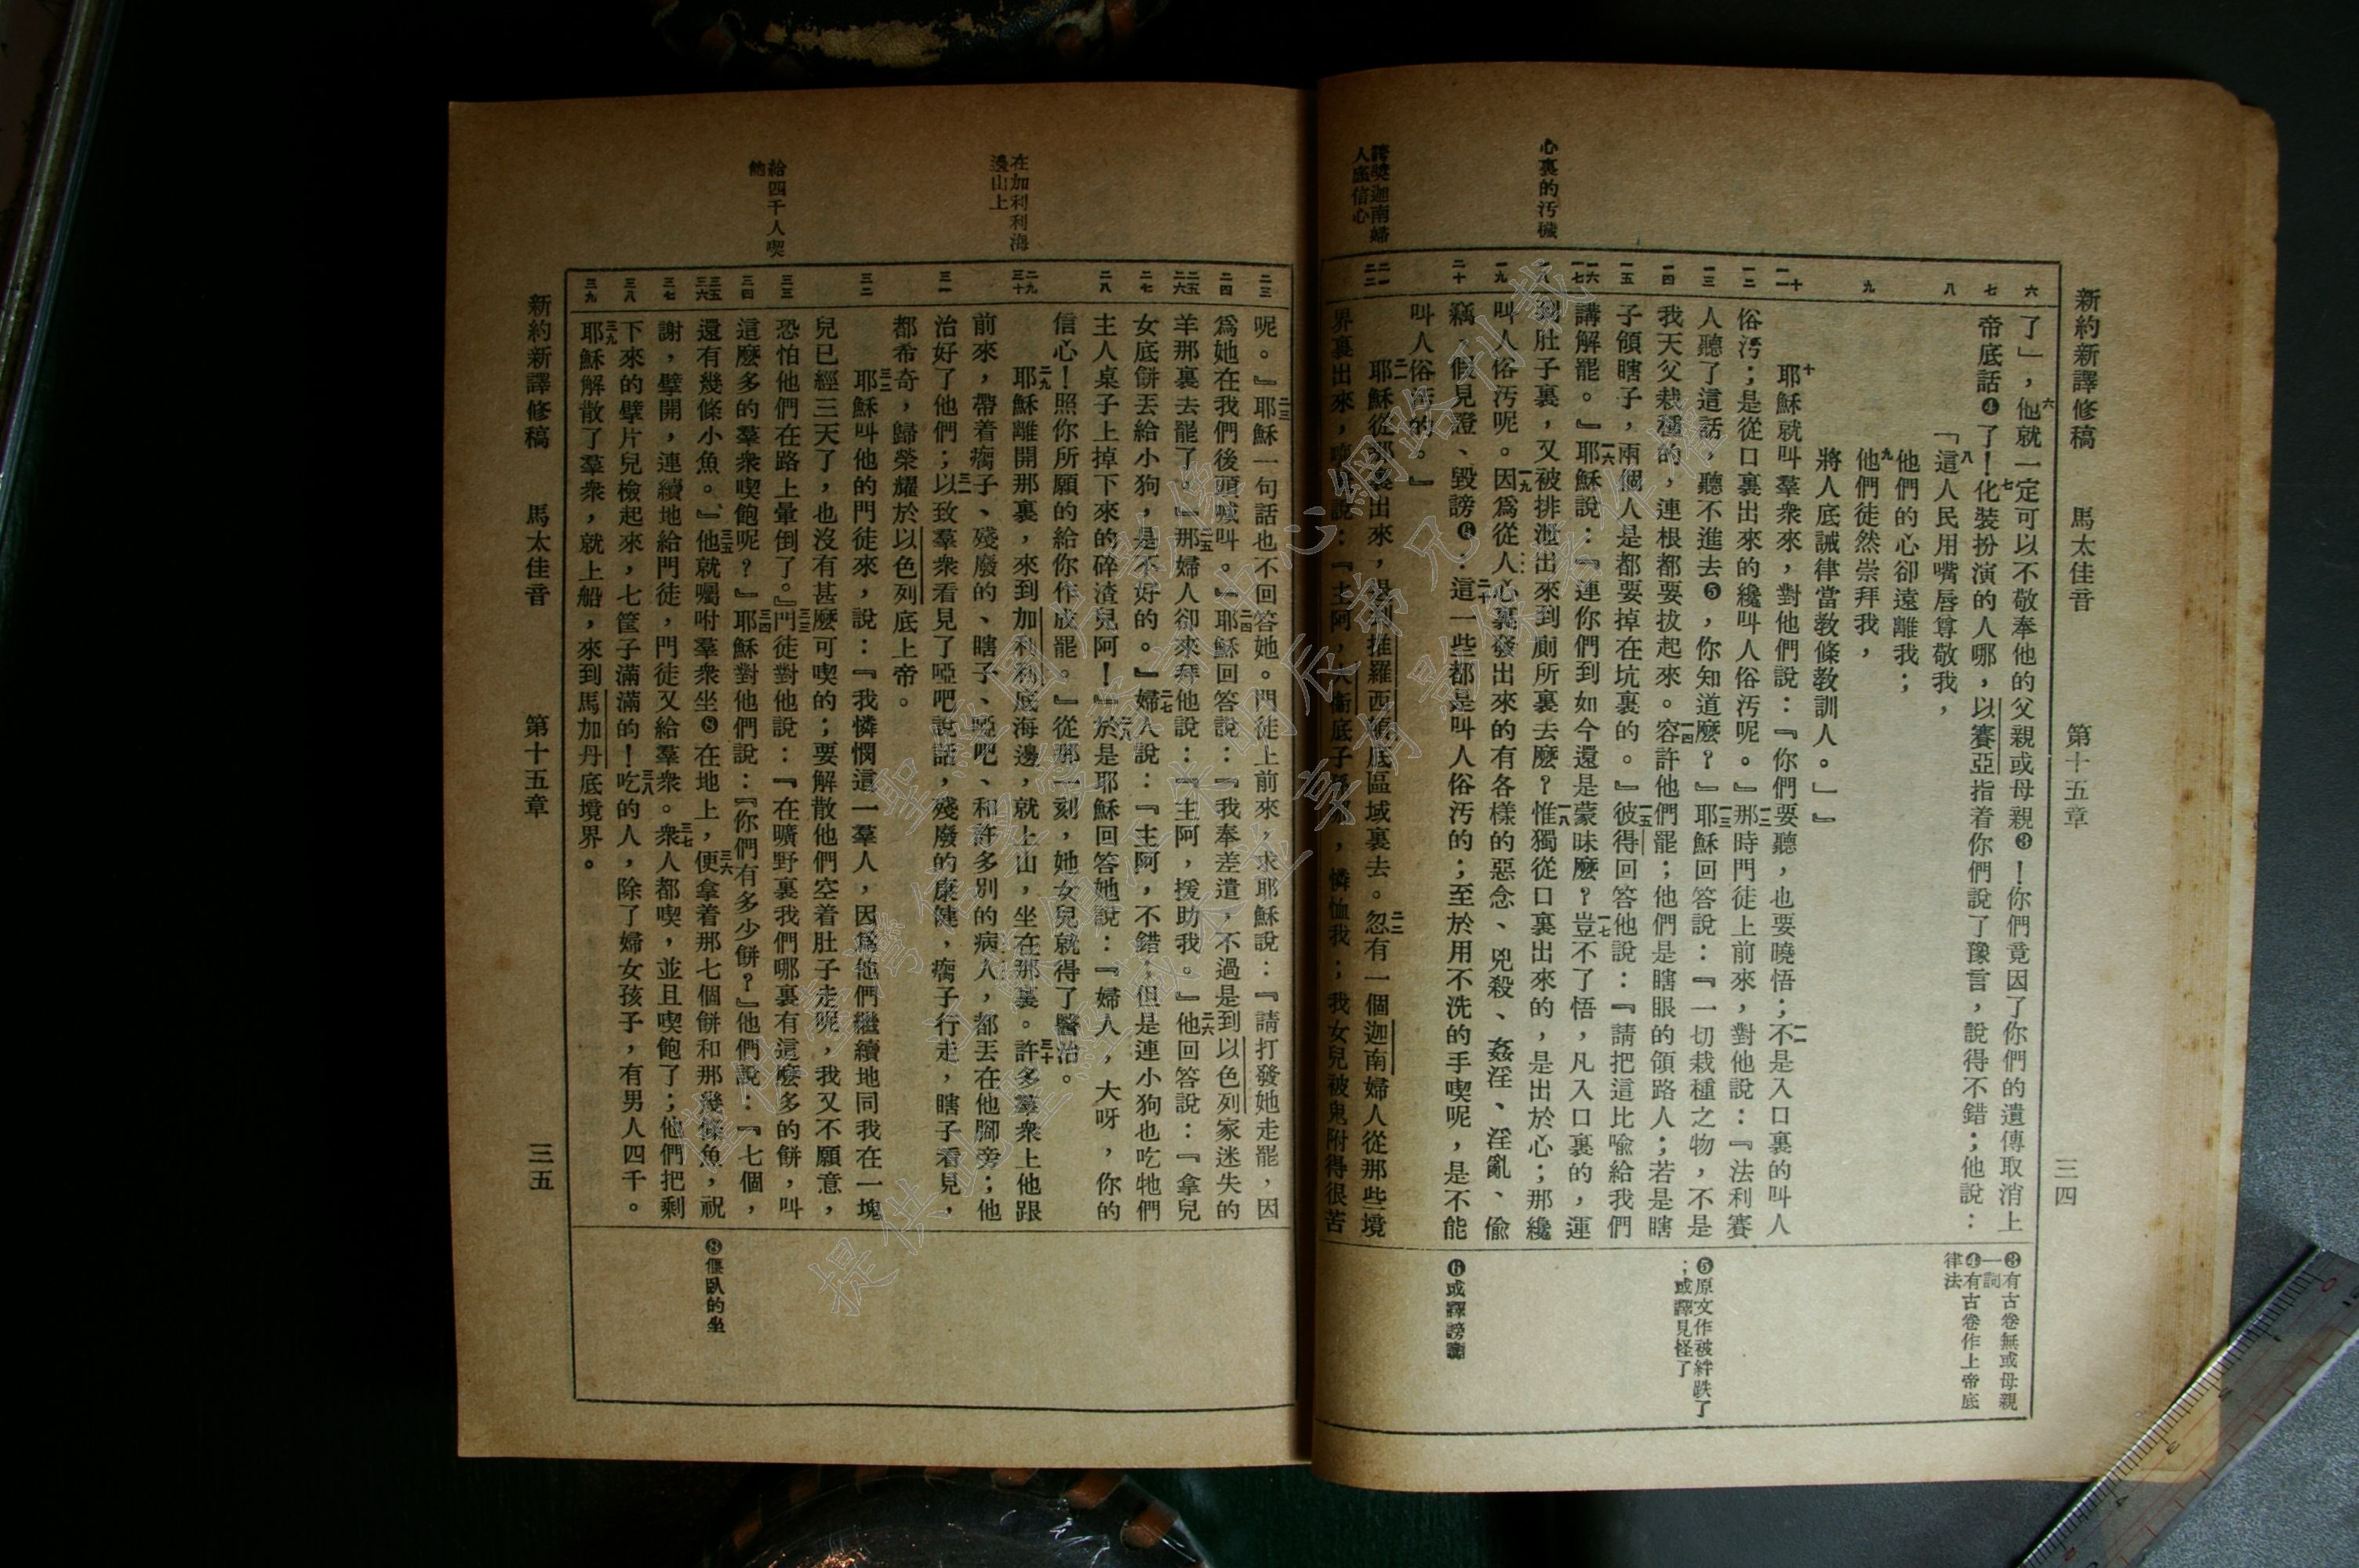 新約新譯修稿　馬太佳音　第十五章　三四
心裏的汚穢
誇奬迦南婦
人底信心
六
七
八
九
十
一一
一二
一三
一四
一五
一六
一七
一八
一九
二十
二一
二二
了」，六他就一定可以不敬奉他的父親或母親❸！你們竟因了你們的遺傳取消上
帝底話❹了！七化裝扮演的人哪，以賽亞指着你們說了豫言，說得不錯；他說：
八「這人民用嘴唇尊敬我，
他們的心卻遠離我；
九他們徒然崇拜我，
將人底誡律當敎條敎訓人。」』
十耶穌就叫羣衆來，對他們說：『你們要聽，也要曉悟；一一不是入口裏的叫人
俗汚；是從口裏出來的纔叫人俗汚呢。』一二那時門徒上前來，對他說：『法利賽
人聽了這話，聽不進去❺，你知道麼？』一三耶穌回答說：『一切栽種之物，不是
我天父栽種的，連根都要拔起來。一四容許他們罷；他們是瞎眼的領路人；若是瞎
子領瞎子，兩個人是都要掉在坑裏的。』一五彼得回答他說：『請把這比喩給我們
講解罷。』一六耶穌說：『連你們到如今還是蒙昧麼？一七豈不了悟，凡入口裏的，運
到肚子裏，又被排泄出來到廁所裏去麼？一八惟獨從口裏出來的，是出於心；那纔
叫人俗汚呢。一九因爲從人心裏發出來的有各樣的惡念、兇殺、姦淫、淫亂、偸
竊、假見證、毀謗❻：二十這一些都是叫人俗汚的；至於用不洗的手喫呢，是不能
叫人俗汚的。』
二一耶穌從那裏出來，退到推羅西頓底區域裏去。二二忽有一個迦南婦人從那些境
界裏出來，喊着說：『主阿，大衞底子孫那，憐恤我；我女兒被鬼附得很苦
❸有古卷無或母親
一詞
❹有古卷作上帝底
律法
❺原文作被絆跌了
；或譯見怪了
❻或譯謗讟
在加利利海
邊山上
給四千人喫
飽
二三
二四
二五
二六
二七
二八
二九
三十
三一
三二
三三
三四
三五
三六
三七
三八
三九
呢。』二三耶穌一句話也不回答她。門徒上前來，求耶穌說：『請打發她走罷，因
爲她在我們後頭喊叫。』二四耶穌回答說：『我奉差遣，不過是到以色列家迷失的
羊那裏去罷了。』二五那婦人卻來拜他說：『主阿，援助我。』二六他回答說：『拿兒
女底餅丟給小狗，是不好的。』二七婦人說：『主阿，不錯；但是連小狗也吃牠們
主人桌子上掉下來的碎渣兒阿！』二八於是耶穌回答她說：『婦人，大呀，你的
信心！照你所願的給你作成罷。』從那一刻，她女兒就得了醫治。
二九耶穌離開那裏，來到加利利底海邊，就上山，坐在那裏。三十許多羣衆上他跟
前來，帶着瘸子、殘廢的、瞎子、啞吧、和許多別的病人，都丟在他腳旁；他
治好了他們；三一以致羣衆看見了啞吧說話，殘廢的康健，瘸子行走，瞎子看見，
都希奇，歸榮耀於以色列底上帝。
三二耶穌叫他的門徒來，說：『我憐憫這一羣人，因爲他們繼續地同我在一塊
兒已經三天了，也沒有甚麼可喫的；要解散他們空着肚子走呢，我又不願意，
恐怕他們在路上暈倒了。』三三門徒對他說：『在曠野裏我們哪裏有這麼多的餅，叫
這麼多的羣衆喫飽呢？』三四耶穌對他們說：『你們有多少餅？』他們說：『七個，
還有幾條小魚。』三五他就囑咐羣衆坐❽在地上，三六便拿着那七個餅和那幾條魚，祝
謝，擘開，連續地給門徒，門徒又給羣衆。三七衆人都喫，並且喫飽了；他們把剩
下來的擘片兒檢起來，七筐子滿滿的！三八吃的人，除了婦女孩子，有男人四千。
三九耶穌解散了羣衆，就上船，來到馬加丹底境界。
❽偃臥的坐
新約新譯修稿　馬太佳音　第十五章　三五